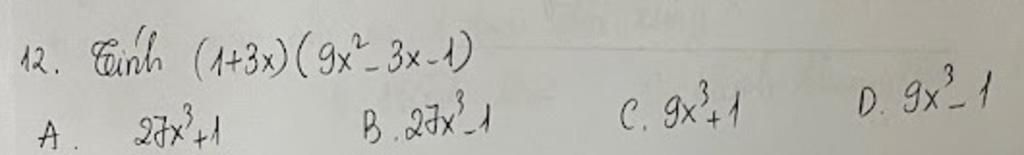 12. Tính (1+3x)(9x²-3x-1)
A. 27x³+1 B. 27x³-1 C. 9x³+1 D. 9x³-1